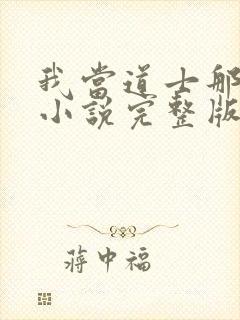 我當道士那
小說完整版
蔣中福